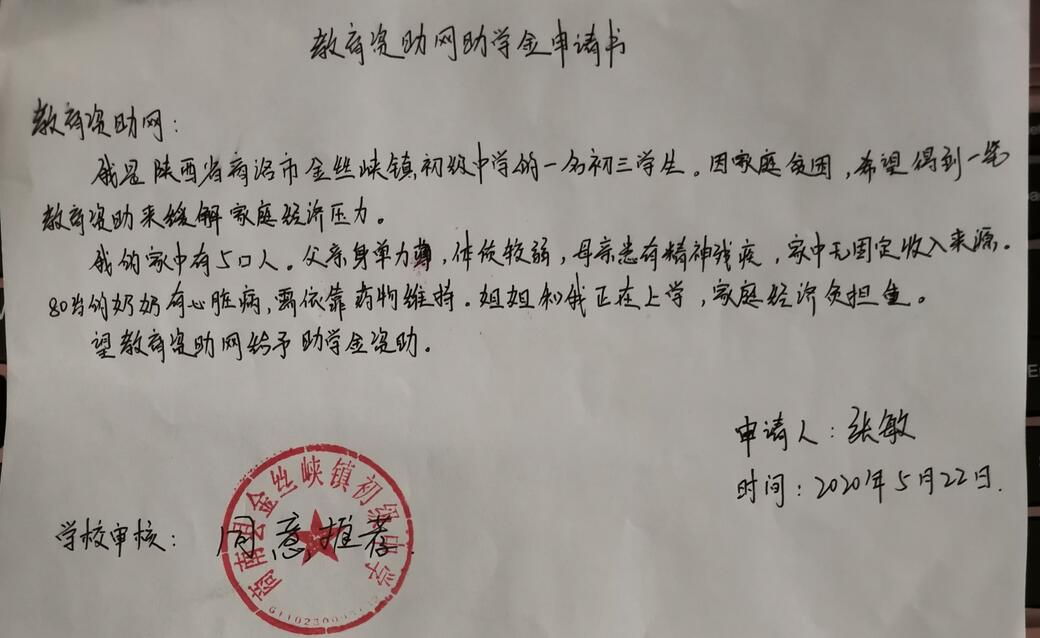 教育资助网助学金申请书
教育资助网：
我是陕西省商洛市金丝峡镇初级中学的一名初三学生。因家庭贫困，希望得到一笔
教育资助来缓解家庭经济压力。
我的家中有5口人。父亲身单力薄，体质较弱，母亲患有精神残疾，家中无固定收入来源。
80岁的奶奶有心脏病，需依靠药物维持。姐姐和我正在上学，家庭经济负担重。
望教育资助网给予助学金资助。
申请人：张敏
时间：2020年5月22日.
学校审核：同意推荐.
商南县金丝峡镇初级中学